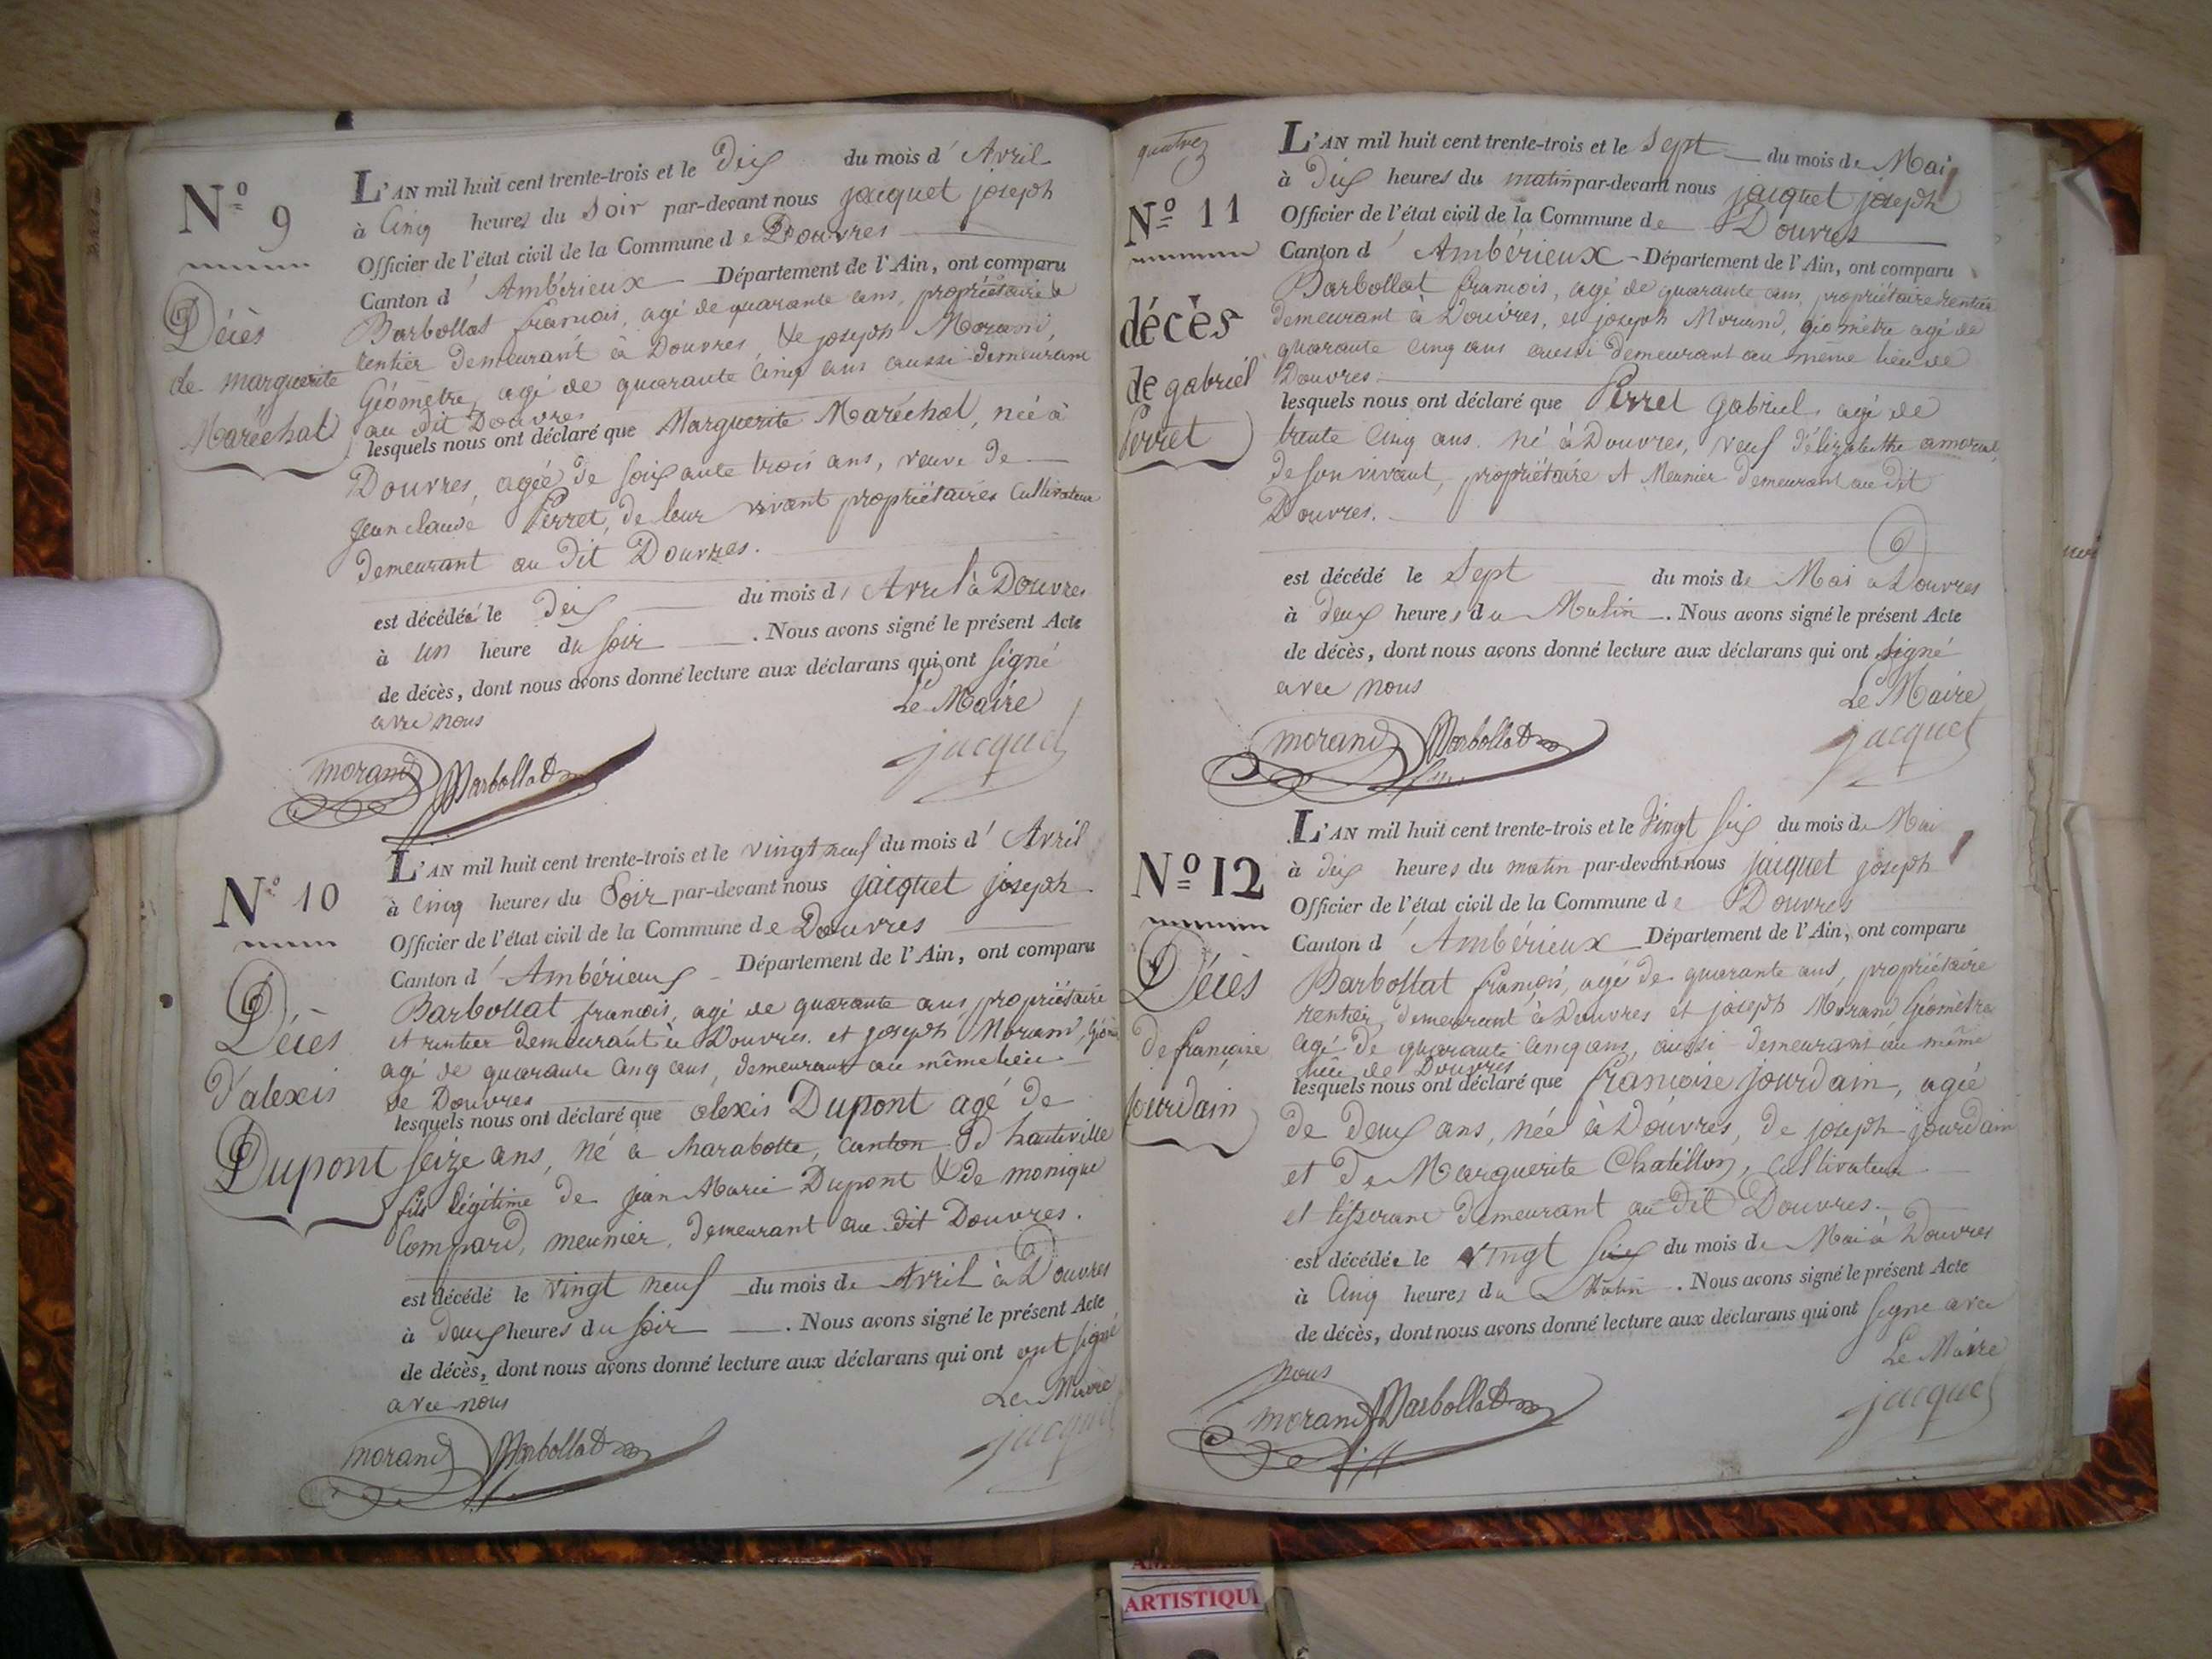 Nº 9
Décès
de marguerite
Maréchal
L'AN mil huit cent trente-trois et le Dix du mois d' Avril
à Cinq heures du Soir par-devant nous jacquet joseph
Officier de l'état civil de la Commune de Douvres
Canton d' Ambérieux Département de l'Ain, ont comparu
Barbollat françois, agé de quarante ans, propriétaire &
rentier demeurant à Douvres, & joseph Morand,
Géomètre, agé de quarante cinq ans aussi demeurant
au dit Douvres
lesquels nous ont déclaré que Marguerite Maréchal, née à
Douvres, agée de soixante trois ans, veuve de
jean claude Perret, de leur vivant propriétaires Cultivateurs
demeurant au dit Douvres.
est décédée le dix du mois d' Avril à Douvres
à un heure du soir . Nous avons signé le présent Acte
de décès, dont nous avons donné lecture aux déclarans qui ont signé
avec nous
Le Maire
morand Barbollat jacquet
Nº 10
Décès
d'alexis
Dupont
L'AN mil huit cent trente-trois et le vingt neuf du mois d' Avril
à Cinq heures du Soir par-devant nous jacquet joseph
Officier de l'état civil de la Commune de Douvres
Canton d' Ambérieux Département de l'Ain, ont comparu
Barbollat francois, agé de quarante ans propriétaire
et rentier demeurant à Douvres. et joseph Morand,
agé de quarante Cinq ans, demeurant au même lieu
de Douvres
lesquels nous ont déclaré que alexis Dupont agé de
seize ans, né a Charabotte, canton d hauteville
fils légitime de jean Marie Dupont & de monique
Compard, meunier, demeurant au dit Douvres.
est décédé le vingt neuf du mois de Avril à Douvres
à Deux heures du soir . Nous avons signé le présent Acte
de décès, dont nous avons donné lecture aux déclarans qui ont ont signé
avec nous
Le Maire
morand Barbollat jacquet
quatre
Nº 11
décès
de gabriel
Perret
L'AN mil huit cent trente-trois et le Sept du mois de Mai
à Dix heures du matin par-devant nous jacquet joseph
Officier de l'état civil de la Commune de Douvres
Canton d' Ambérieux Département de l'Ain, ont comparu
Barbollat francois, agé de quarante ans, propriétaire rentier
demeurant à Douvres, et joseph Morand, géomètre agé de
quarante Cinq ans aussi demeurant au même lieu de
Douvres
lesquels nous ont déclaré que Perret gabriel, agé de
trente Cinq ans. né à Douvres, veuf d'élizabethe
de son vivant, propriétaire et Meunier demeurant au dit
Douvres.
est décédé le Sept du mois de Mai à Douvres
à deux heures du Matin . Nous avons signé le présent Acte
de décès, dont nous avons donné lecture aux déclarans qui ont signé
avec nous
Le Maire
morand Barbollat jacquet
Nº 12
Décès
de françoise
jourdain
L'AN mil huit cent trente-trois et le Vingt six du mois de Mai
à dix heures du matin par-devant nous jacquet joseph
Officier de l'état civil de la Commune de Douvres
Canton d' Ambérieux Département de l'Ain, ont comparu
Barbollat françois, agé de quarante ans, propriétaire
rentier, demeurant à Douvres et joseph Morand Géomètre
agé de quarante cinq ans, aussi demeurant au même
lieu de Douvres
lesquels nous ont déclaré que francoise jourdain, agée
de deux ans, née à Douvres, de joseph jourdain
et de Marguerite Chatillon, cultivateur
et tisserant demeurant au dit Douvres.
est décédée le vingt six du mois de Mai à Douvres
à Cinq heures du Matin . Nous avons signé le présent Acte
de décès, dont nous avons donné lecture aux déclarans qui ont signé avec
nous
Le Maire
morand Barbollat jacquet
ARTISTIQU